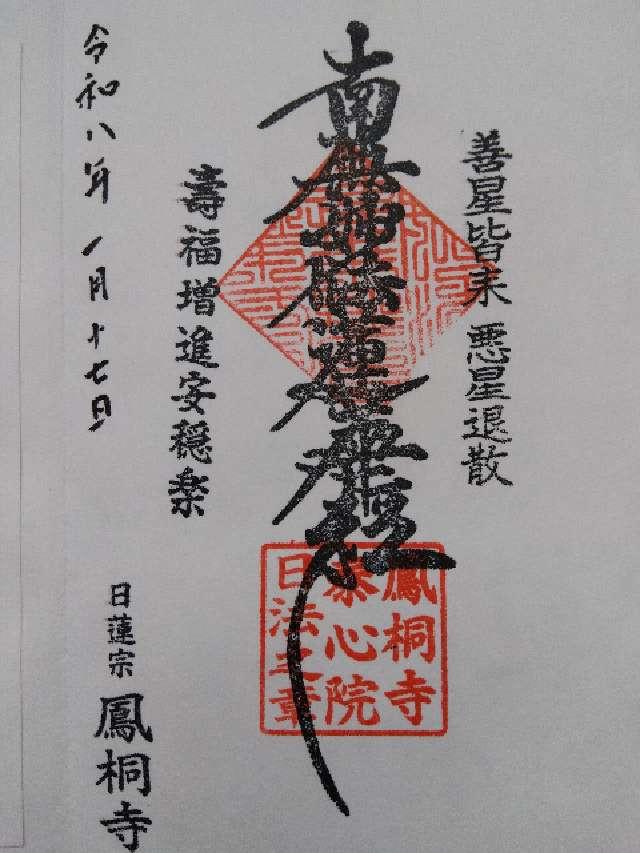 善星皆来 悪星退散
南無妙法蓮華経
壽福増進安穏楽
令和八年 一月十七日
日蓮宗 鳳桐寺
鳳桐寺
泰心院
日法之章